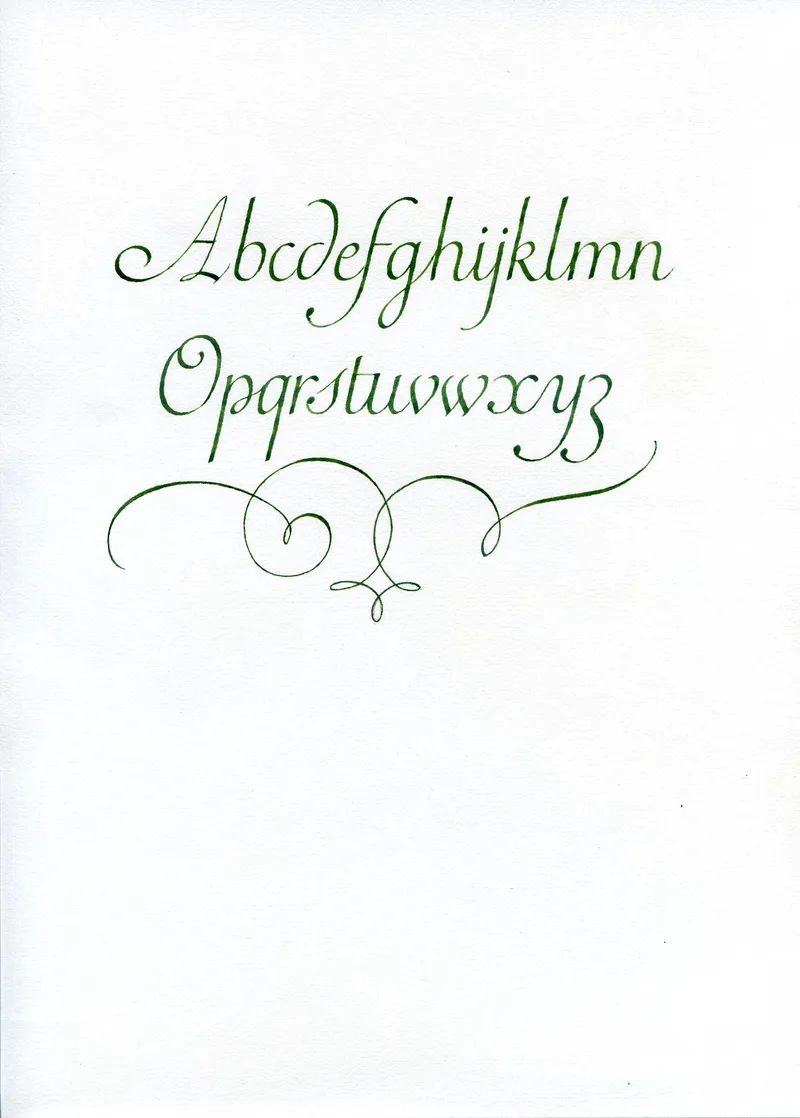 Abcdefghijklmn
Opqrstuvwxyz